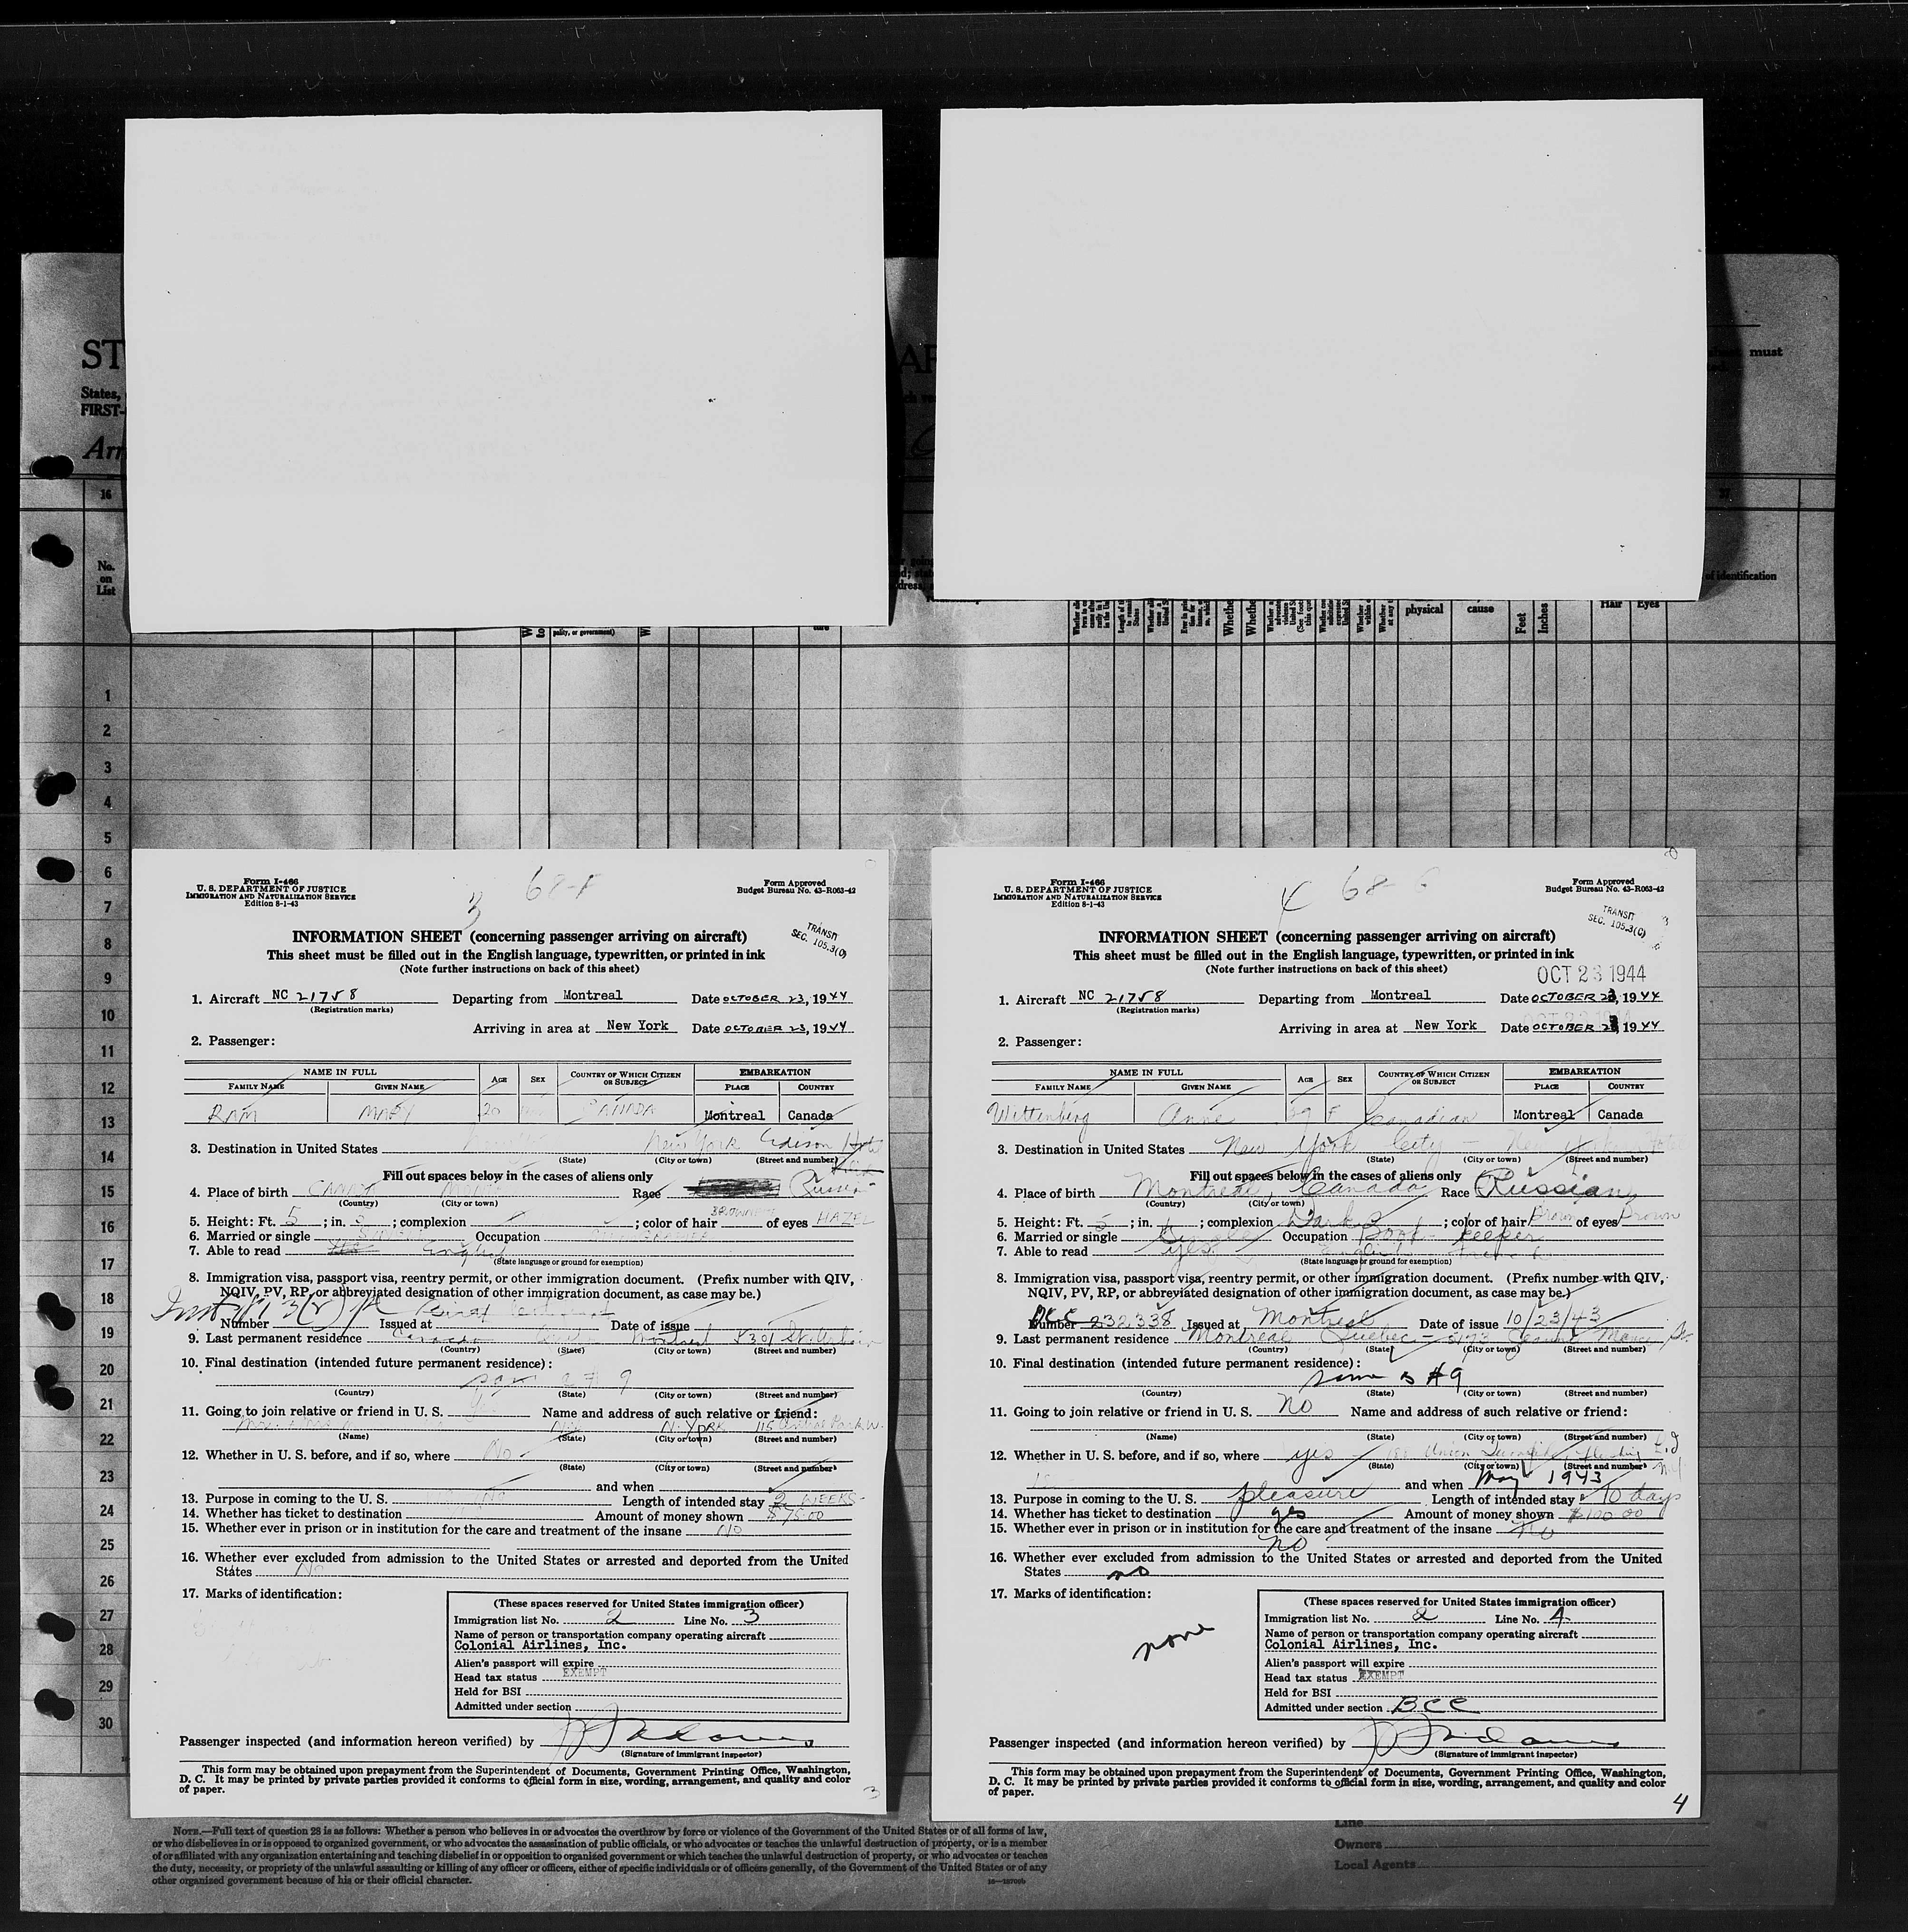 ST
AR
must
States,
FIRST-
Arr
16
No.
on
List
of identification
physical
cause
Feet
Inches
Hair
Eyes
pality, or government)
1
2
3
4
5
6
7
8
9
10
11
12
13
14
15
16
17
18
19
20
21
22
23
24
25
26
27
28
29
30
Form I-466
U. S. DEPARTMENT OF JUSTICE
IMMIGRATION AND NATURALIZATION SERVICE
Edition 8-1-43
3
68-F
Form Approved
Budget Bureau No. 43-R063-42
TRANSIT
SEC. 105.3(C)
INFORMATION SHEET (concerning passenger arriving on aircraft)
This sheet must be filled out in the English language, typewritten, or printed in ink
(Note further instructions on back of this sheet)
1. Aircraft NC 21758 Departing from Montreal Date OCTOBER 23, 1944
(Registration marks)
Arriving in area at New York Date OCTOBER 23, 1944
2. Passenger:
NAME IN FULL AGE SEX COUNTRY OF WHICH CITIZEN OR SUBJECT EMBARKATION
FAMILY NAME GIVEN NAME PLACE COUNTRY
RAM MARY 20 CANADA Montreal Canada
3. Destination in United States New York Edison Hotel
(State) (City or town) (Street and number)
Fill out spaces below in the cases of aliens only
4. Place of birth Race Russian
(Country) (City or town)
5. Height: Ft. 5 ; in. 3 ; complexion ; color of hair BROWN of eyes HAZEL
6. Married or single Occupation
7. Able to read English
(State language or ground for exemption)
8. Immigration visa, passport visa, reentry permit, or other immigration document. (Prefix number with QIV,
NQIV, PV, RP, or abbreviated designation of other immigration document, as case may be.)
Number Issued at Date of issue
9. Last permanent residence Montreal
(Country) (State) (City or town) (Street and number)
10. Final destination (intended future permanent residence):
same as # 9
(Country) (State) (City or town) (Street and number)
11. Going to join relative or friend in U. S. Name and address of such relative or friend:
N. York 115 Central Park W.
(Name) (State) (City or town) (Street and number)
12. Whether in U. S. before, and if so, where No -
(State) (City or town) (Street and number)
and when
13. Purpose in coming to the U. S. Length of intended stay 2 WEEKS
14. Whether has ticket to destination Amount of money shown $75.00
15. Whether ever in prison or in institution for the care and treatment of the insane NO
16. Whether ever excluded from admission to the United States or arrested and deported from the United
States No
17. Marks of identification:
(These spaces reserved for United States immigration officer)
Immigration list No. 2 Line No. 3
Name of person or transportation company operating aircraft
Colonial Airlines, Inc.
Alien's passport will expire
Head tax status EXEMPT
Held for BSI
Admitted under section
Passenger inspected (and information hereon verified) by
(Signature of immigrant inspector)
This form may be obtained upon prepayment from the Superintendent of Documents, Government Printing Office, Washington,
D. C. It may be printed by private parties provided it conforms to official form in size, wording, arrangement, and quality and color
of paper.
3
Form I-466
U. S. DEPARTMENT OF JUSTICE
IMMIGRATION AND NATURALIZATION SERVICE
Edition 8-1-43
4
68-G
Form Approved
Budget Bureau No. 43-R063-42
TRANSIT
SEC. 105.3(C)
INFORMATION SHEET (concerning passenger arriving on aircraft)
This sheet must be filled out in the English language, typewritten, or printed in ink
(Note further instructions on back of this sheet)
OCT 23 1944
1. Aircraft NC 21758 Departing from Montreal Date OCTOBER 23, 1944
(Registration marks)
Arriving in area at New York Date OCTOBER 23, 1944
2. Passenger:
NAME IN FULL AGE SEX COUNTRY OF WHICH CITIZEN OR SUBJECT EMBARKATION
FAMILY NAME GIVEN NAME PLACE COUNTRY
Wittenberg Anne 29 F Canadian Montreal Canada
3. Destination in United States New York City -
(State) (City or town) (Street and number)
Fill out spaces below in the cases of aliens only
4. Place of birth Montreal, Canada Race Russian
(Country) (City or town)
5. Height: Ft. 5 ; in. 1 ; complexion Dark ; color of hair Brown of eyes Brown
6. Married or single Single Occupation Book-keeper
7. Able to read yes English - French
(State language or ground for exemption)
8. Immigration visa, passport visa, reentry permit, or other immigration document. (Prefix number with QIV,
NQIV, PV, RP, or abbreviated designation of other immigration document, as case may be.)
BCC
Number 232338 Issued at Montreal Date of issue 10/23/43
9. Last permanent residence Montreal Quebec - 5173 Jeanne Mance St.
(Country) (State) (City or town) (Street and number)
10. Final destination (intended future permanent residence):
same as #9
(Country) (State) (City or town) (Street and number)
11. Going to join relative or friend in U. S. No Name and address of such relative or friend:
(Name) (State) (City or town) (Street and number)
12. Whether in U. S. before, and if so, where yes - Union Turnpike, Flushing L.I
(State) (City or town) (Street and number)
and when May 1943
13. Purpose in coming to the U. S. pleasure Length of intended stay 10 days
14. Whether has ticket to destination yes Amount of money shown $100.00
15. Whether ever in prison or in institution for the care and treatment of the insane No
no
16. Whether ever excluded from admission to the United States or arrested and deported from the United
States no
17. Marks of identification:
none
(These spaces reserved for United States immigration officer)
Immigration list No. 2 Line No. 4
Name of person or transportation company operating aircraft
Colonial Airlines, Inc.
Alien's passport will expire
Head tax status EXEMPT
Held for BSI
Admitted under section BCC
Passenger inspected (and information hereon verified) by
(Signature of immigrant inspector)
This form may be obtained upon prepayment from the Superintendent of Documents, Government Printing Office, Washington,
D. C. It may be printed by private parties provided it conforms to official form in size, wording, arrangement, and quality and color
of paper.
4
NOTE.—Full text of question 28 is as follows: Whether a person who believes in or advocates the overthrow by force or violence of the Government of the United States or of all forms of law,
or who disbelieves in or is opposed to organized government, or who advocates the assassination of public officials, or who advocates or teaches the unlawful destruction of property, or is a member
of or affiliated with any organization entertaining and teaching disbelief in or opposition to organized government or which teaches the unlawful destruction of property, or who advocates or teaches
the duty, necessity, or propriety of the unlawful assaulting or killing of any officer or officers, either of specific individuals or of officers generally, of the Government of the United States or of any
other organized government because of his or their official character.
Line
Owners
Local Agents